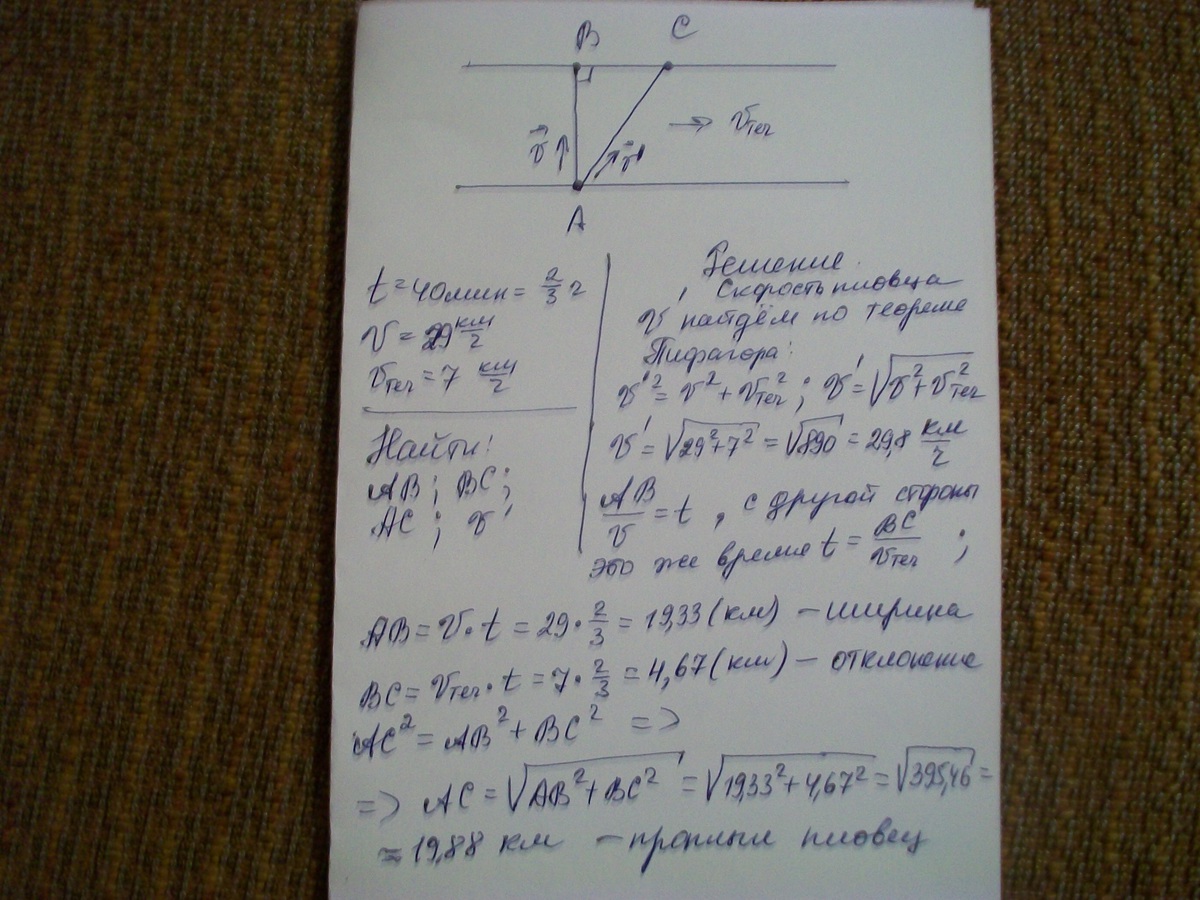 B C
v⃗ v⃗' → vтеч
A
t = 40 мин = 2/3 ч
v = 29 км/ч
vтеч = 7 км/ч
Найти:
AB; BC;
AC; v'
Решение.
Скорость пловца
v' найдём по теореме
Пифагора:
v'² = v² + vтеч²; v' = √(v² + vтеч²)
v' = √(29²+7²) = √890 = 29,8 км/ч
AB/v = t, с другой стороны
это же время t = BC/vтеч;
AB = v · t = 29 · 2/3 = 19,33 (км) – ширина
BC = vтеч · t = 7 · 2/3 = 4,67 (км) – отклонение
AC² = AB² + BC² =>
=> AC = √(AB² + BC²) = √(19,33² + 4,67²) = √395,46 =
= 19,88 км – проплыл пловец